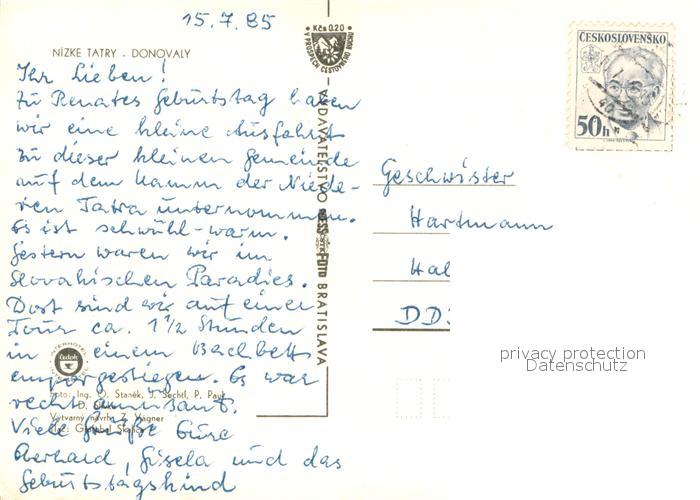 15.7.85
NÍZKE TATRY - DONOVALY
Ihr Lieben!
Zu Renates Geburtstag haben
wir eine kleine Ausfahrt
zu dieser kleinen Gemeinde
auf dem Kamm der Niede-
ren Tatra unternommen.
Es ist schwühl-warm.
Gestern waren wir im
Slovakischen Paradies.
Dort sind wir auf einer
Tour ca. 1 1/2 Stunden
in einem Bachbett
emporgestiegen. Es war
recht amüsant.
Viele Grüße Eure
Eberhard, Gisela und das
Geburtstagskind
INTERHOTEL
Čedok
Foto: Ing. O. Staněk, J. Sechtl, P. Paul
Výtvarný návrh: Z. Wagner
Kčs 0.20
V PROSPECH CESTOVNÉHO RUCHU
VYDAVATEĽSTVO
BRATISLAVA
ČESKOSLOVENSKO
50h
Geschwister
Hartmann
Hal
DD
privacy protection
Datenschutz